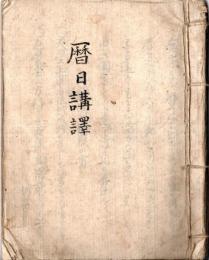 暦日講譯